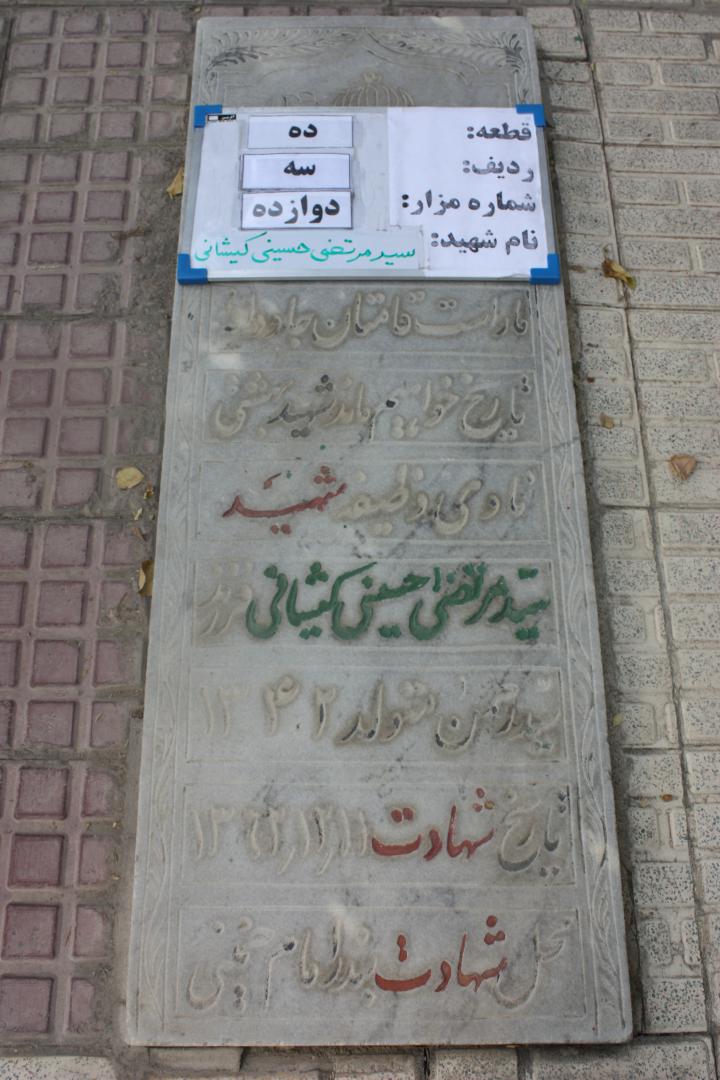 قطعه: ده
ردیف: سه
شماره مزار: دوازده
نام شهید: سید مرتضی حسینی کیشانی
ما راست قامتان جاودانه
تاریخ خواهیم ماند شهید بهشتی
شهید
سید مرتضی حسینی کیشانی فرزند
سید حسن تولد ۱۳۴۲
تاریخ شهادت
محل شهادت بندر امام خمینی